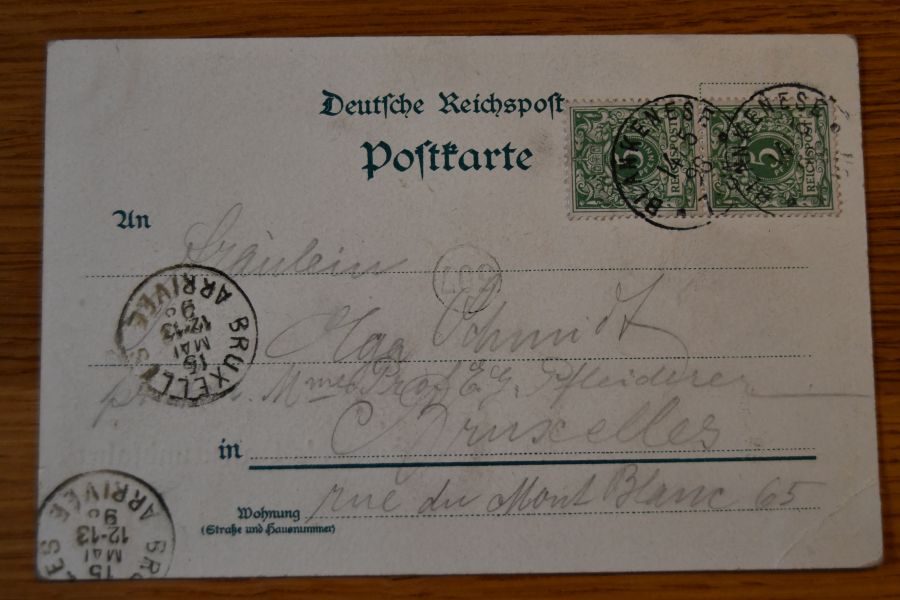 Deutsche Reichspost
Postkarte
5
REICHSPOST
5
PFENNIG
REICHSPOST
BLANKENESE
14 5
BLANKENESE
An
Fräulein
Olga Schmidt
Mme Prof. E. G. Pfleiderer
in Bruxelles
rue du Mont Blanc 65
Wohnung
(Straße und Hausnummer)
BRUXELLES
15
MAI
12-13
ARRIVÉE
15
MAI
12-13
ARRIVÉE